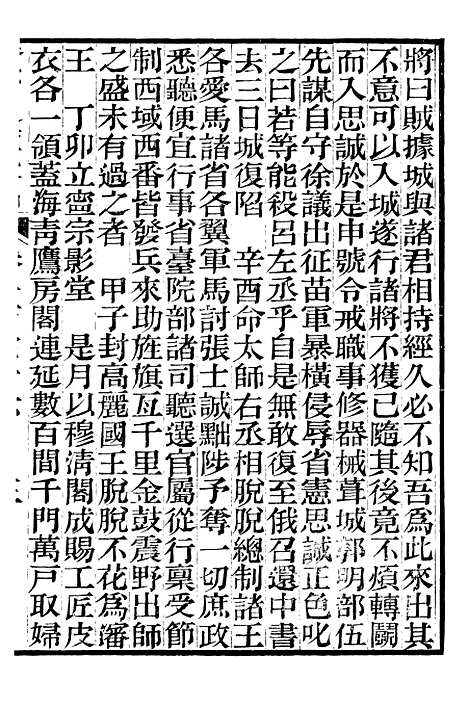 將曰賊據城與諸君相持經久必不知吾爲此來出其
不意可以入城遂行諸將不獲已隨其後竟不煩轉鬬
而入思誠於是申號令戒職事修器械葺城郭明部伍
先謀自守徐議出征苗軍暴橫侵辱省憲思誠正色叱
之曰若等能殺呂左丞乎自是無敢復至俄召還中書
去三日城復陷　辛酉命太師右丞相脫脫總制諸王
各愛馬諸省各翼軍馬討張士誠黜陟予奪一切庶政
悉聽便宜行事省臺院部諸司聽選官屬從行稟受節
制西域西番皆發兵來助旌旗亙千里金鼓震野出師
之盛未有過之者　甲子封高麗國王脫脫不花爲瀋
王　丁卯立寧宗影堂　是月以穆淸閣成賜工匠皮
衣各一領蓋海靑鷹房閣連延數百間千門萬戸取婦